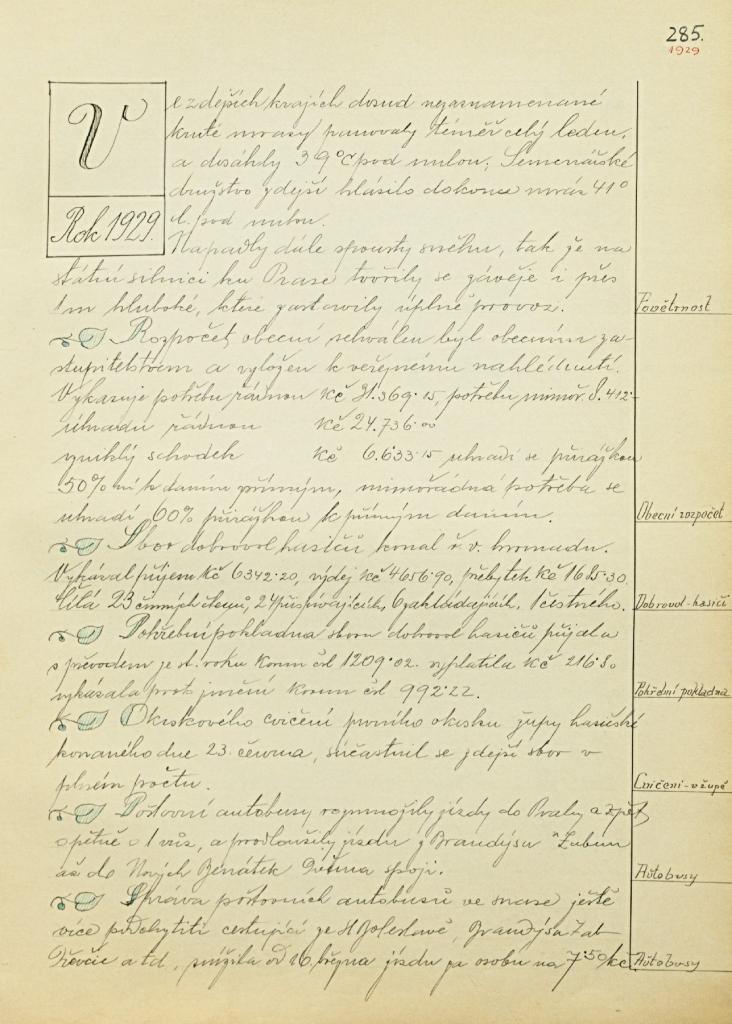 285.
1929
V
Rok 1929.
e zdejších krajích dosud nezaznamenané
kruté mrazy panovaly téměř celý leden,
a dosáhly 39°C pod nulou. Semenářské
družstvo zdejší hlásilo dokonce mráz 41°
C. pod nulou.
Napadly dále spousty sněhu, tak že na
státní silnici ku Praze tvořily se závěje i přes
1m hluboké, které zastavily úplně provoz.
Povětrnost
Rozpočet obecní schválen byl obecním za-
stupitelstvem a vyložen k veřejnému nahlédnutí.
Vykazuje potřebu řádnou Kč 31.369·15, potřebu mimoř. 8.412·-
úhradu řádnou Kč 24.736·00
vzniklý schodek Kč 6.633·15 uhradí se přirážkou
50% ní k daním přímým, mimořádná potřeba se
uhradí 60% přirážkou k přímým daním.
Obecní rozpočet
Sbor dobrovol hasičů konal ř. v. hromadu.
Vykázal příjem Kč 6342·20, výdej Kč 4656·90, přebytek Kč 1685·30.
Čítá 23 činných členů, 24 přispívajících, 6 zakládajících, 1 čestného.
Dobrovol-hasiči
Pohřební pokladna sboru dobrovol hasičů přijala
s převodem ze st. roku Korun čsl 1209·02. vyplatila Kč 216·80
vykázala proto jmění Korun čsl 992·22.
Pohřební pokladna
Okrskového cvičení prvního okrsku župy hasičské
konaného dne 23. června, súčastnil se zdejší sbor v
plném počtu.
Cvičení-v župě
Poštovní autobusy rozmnožily jízdy do Prahy a zpět
opětně o 1 vůz, a prodloužily jízdu z Brandýsa n Labem
až do Nových Benátek dvěma spoji.
Autobusy
Správa poštovních autobusů ve snaze ještě
více podchytiti cestující ze St Boleslavě, Brandýsa Lab
Dřevčic a td, snížila od 16. března jízdu za osobu na 7·50 Kč
Autobusy